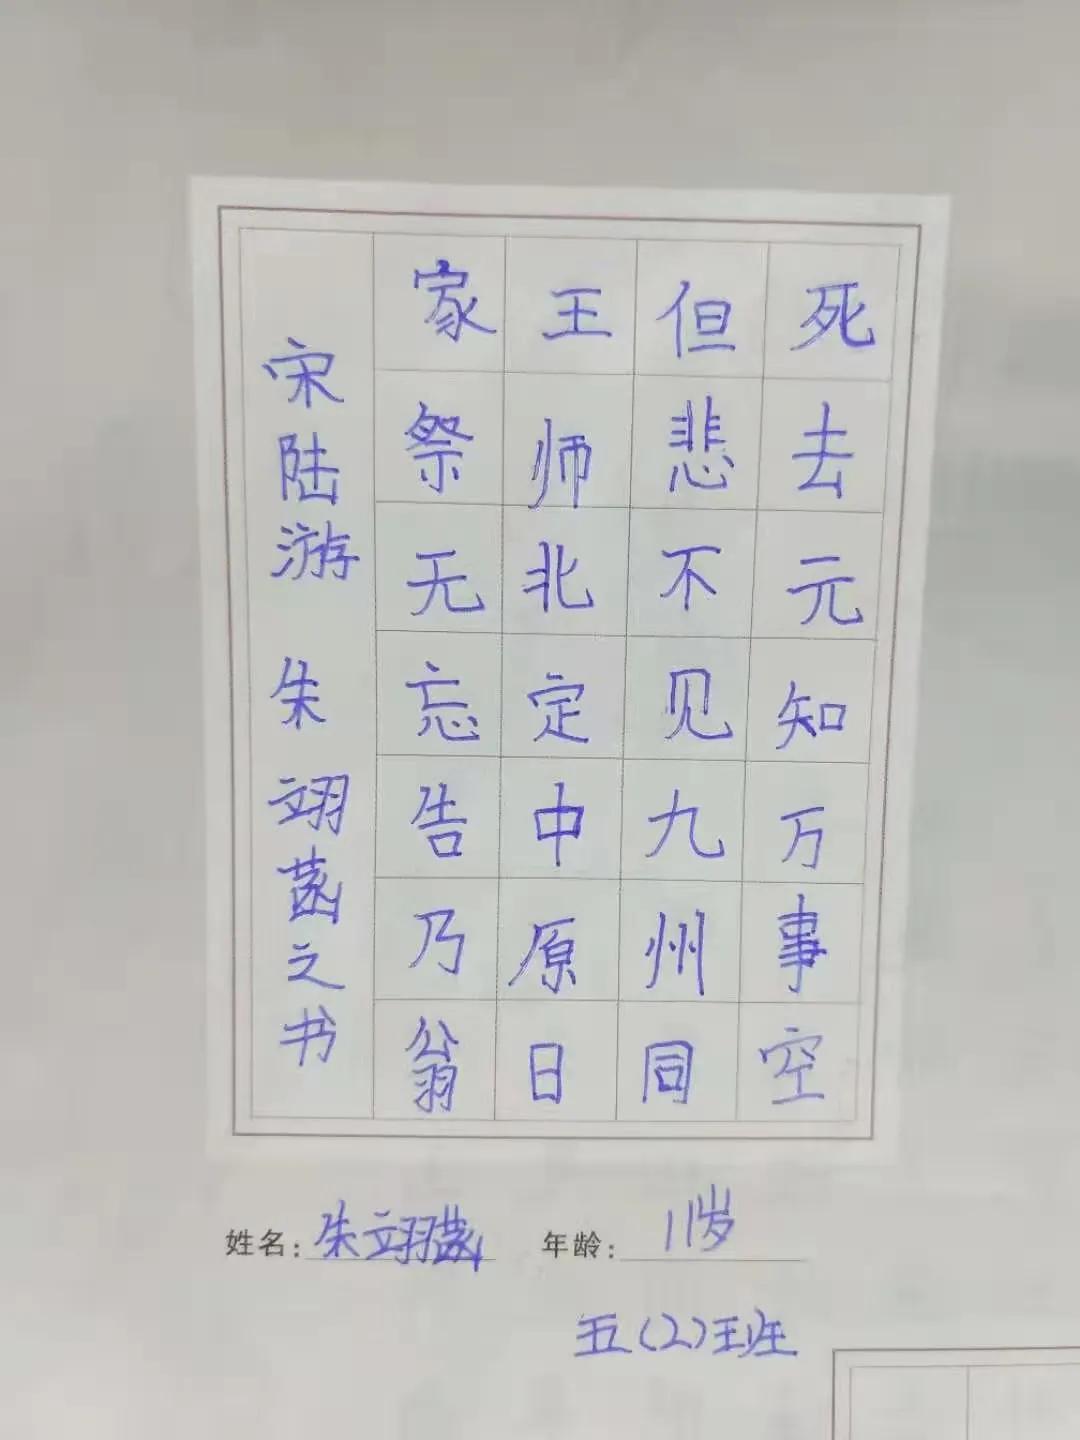 死去元知万事空
但悲不见九州同
王师北定中原日
家祭无忘告乃翁
宋陆游 朱翊菡之书
姓名：朱翊菡 年龄：11岁
五(2)班